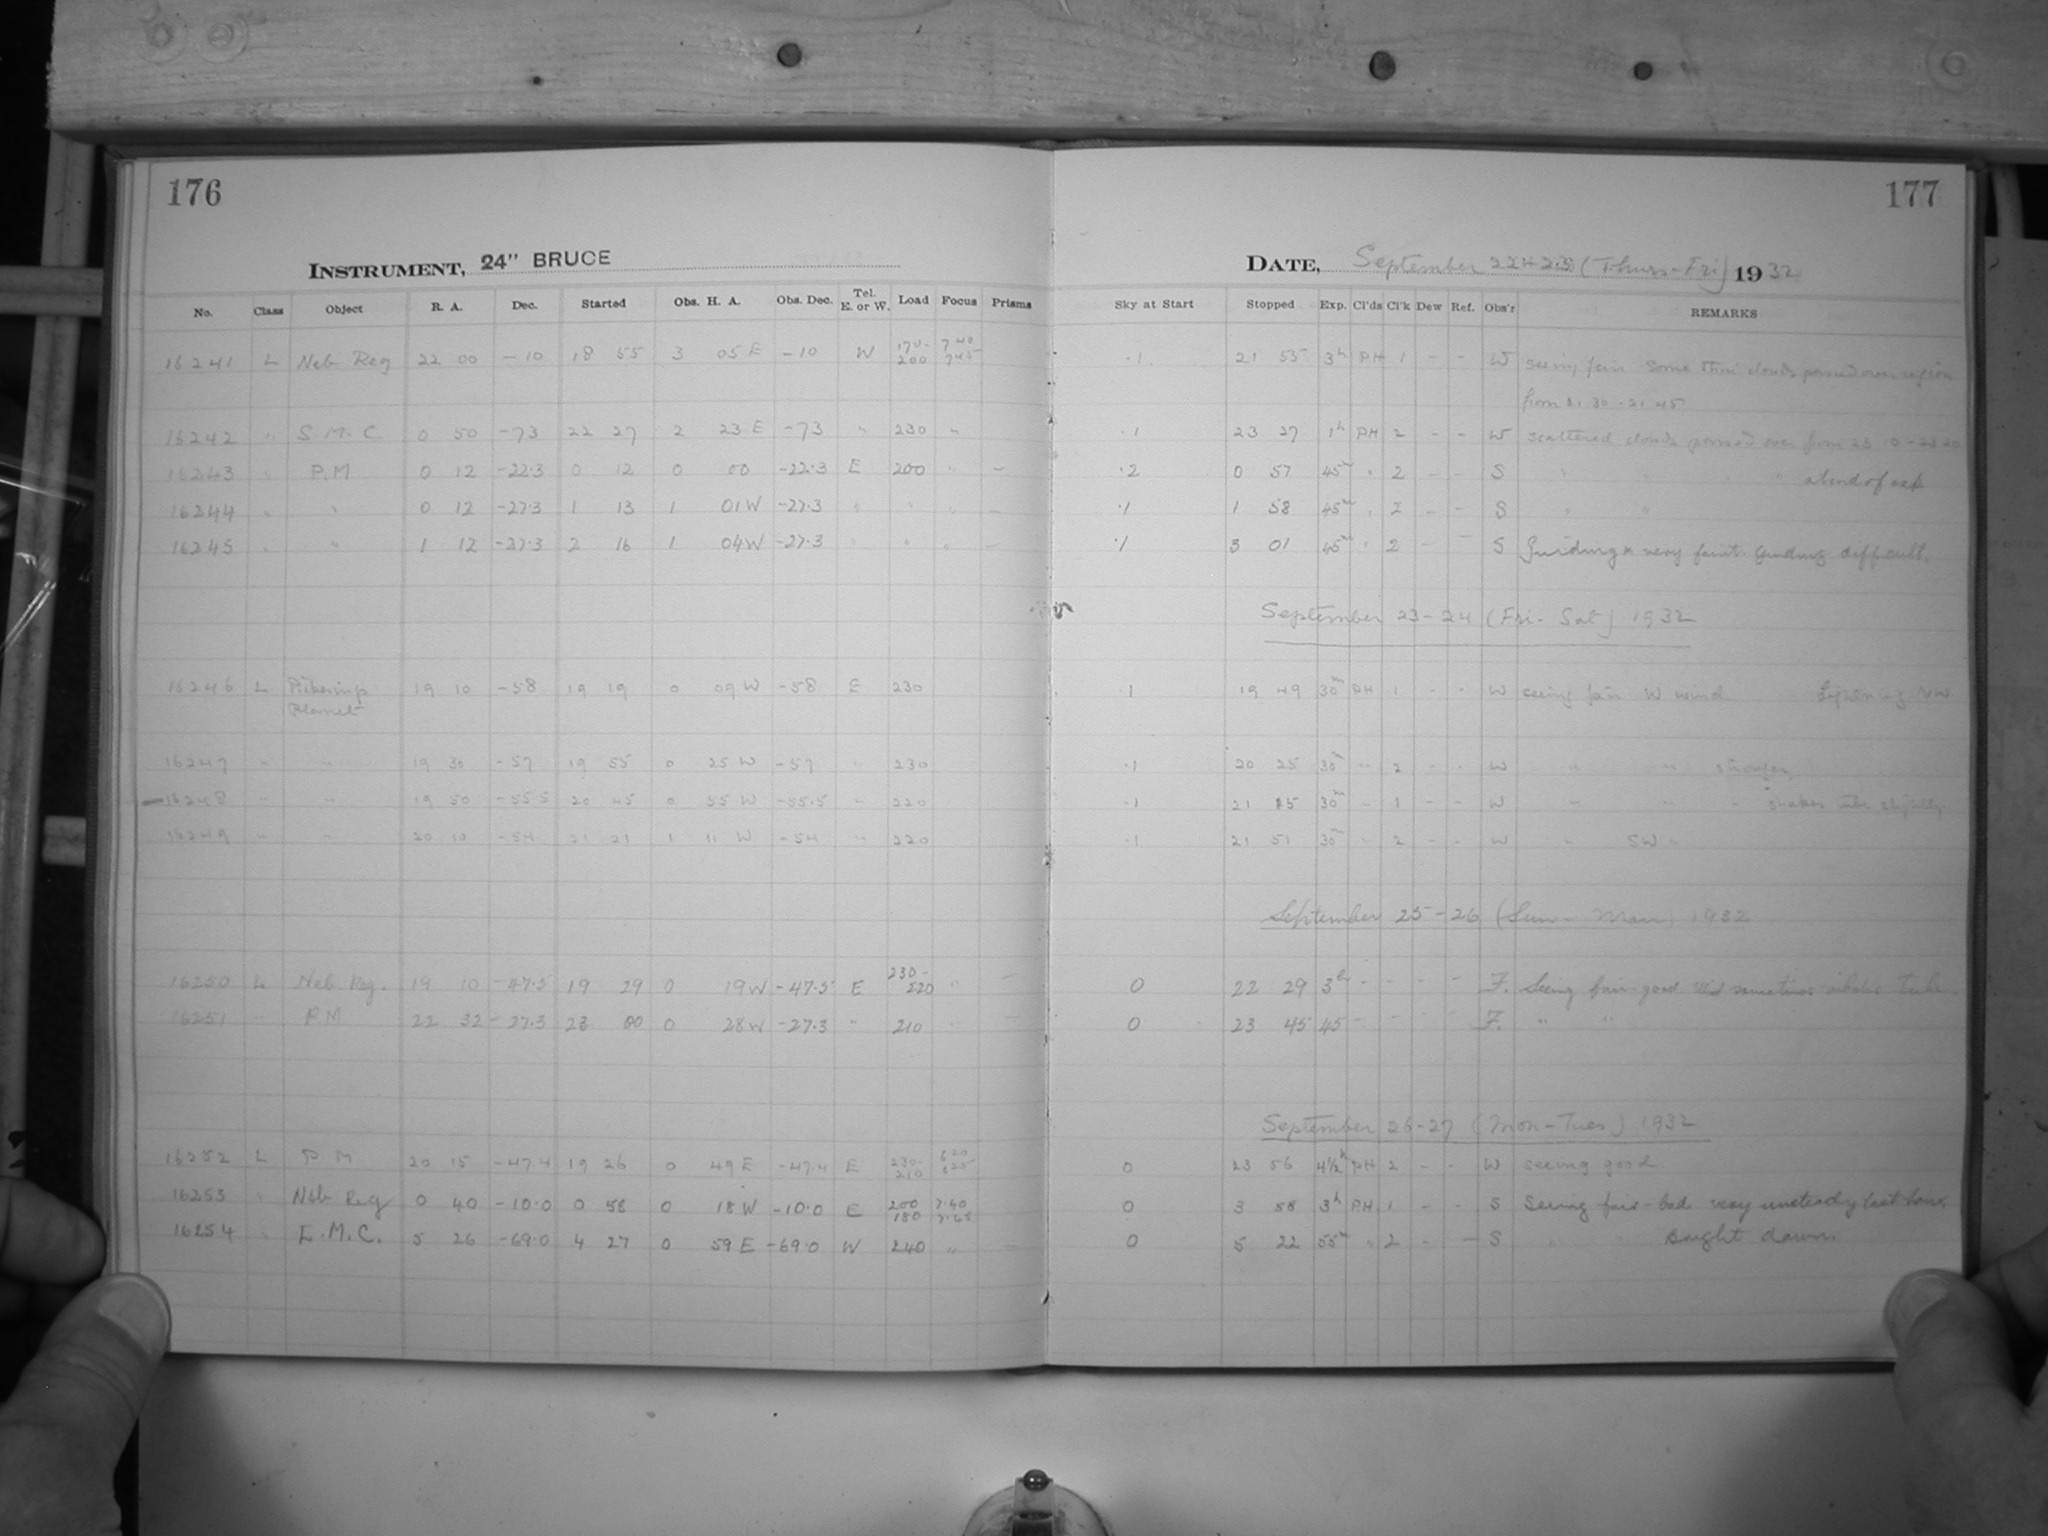 176
177
INSTRUMENT, 24" BRUCE
DATE, September 22+23 (Thurs-Fri) 1932
No. Class Object R. A. Dec. Started Obs. H. A. Obs. Dec. Tel. E. or W. Load Focus Prisms Sky at Start Stopped Exp. Cl'ds Cl'k Dew Ref. Obs'r REMARKS
16241 L Neb Reg 22 00 -10 18 55 3 05 E -10 W 170-200 740 745 .1 21 55 3h PH 1 - - W seeing fair some thin clouds passed over region
from 21 30 - 21 45
16242 " S.M.C. 0 50 -73 22 27 2 23 E -73 " 230 " .1 23 27 1h PH 2 - - W scattered clouds passed over from 23 10 - 23 20
16243 " P.M 0 12 -22.3 0 12 0 00 -22.3 E 200 " - .2 0 57 45m " 2 - - S " " " " at end of exp.
16244 " " 0 12 -27.3 1 13 1 01 W -27.3 " " " - .1 1 58 45m " 2 - - S " "
16245 " " 1 12 -27.3 2 16 1 04 W -27.3 " " " - .1 3 01 45m " 2 - - S Guiding * very faint. Guiding difficult.
September 23-24 (Fri-Sat) 1932
16246 L Pickering's Planet 19 10 -58 19 19 0 09 W -58 E 230 .1 19 49 30m PH 1 - - W seeing fair W wind Lightning NW
16247 " " 19 30 -57 19 55 0 25 W -57 " 230 .1 20 25 30m " 2 - - W " " stronger
16248 " " 19 50 -55.5 20 45 0 55 W -55.5 " 220 .1 21 15 30m " 1 - - W " " " shakes tube slightly
16249 " " 20 10 -54 21 21 1 11 W -54 " 220 .1 21 51 30m " 2 - - W " SW "
September 25-26 (Sun-Mon) 1932
16250 L Neb Reg. 19 10 -47.5 19 29 0 19 W -47.5 E 230-220 " - 0 22 29 3h - - - - F. Seeing fair-good. Wind sometimes
16251 " P M 22 32 -27.3 23 00 0 28 W -27.3 " 210 - 0 23 45 45 - - - - F. " "
September 26-27 (Mon-Tues) 1932
16252 L P M 20 15 -47.4 19 26 0 49 E -47.4 E 230-210 0 23 56 4½h PH 2 - - W seeing good
16253 " Neb Reg 0 40 -10.0 0 58 0 18 W -10.0 E 200 180 7.40 7.45 0 3 58 3h PH 1 - - S Seeing fair-bad very unsteady last hour.
16254 " L.M.C. 5 26 -69.0 4 27 0 59 E -69.0 W 240 " 0 5 22 55m " 2 - - S " " Bright dawn